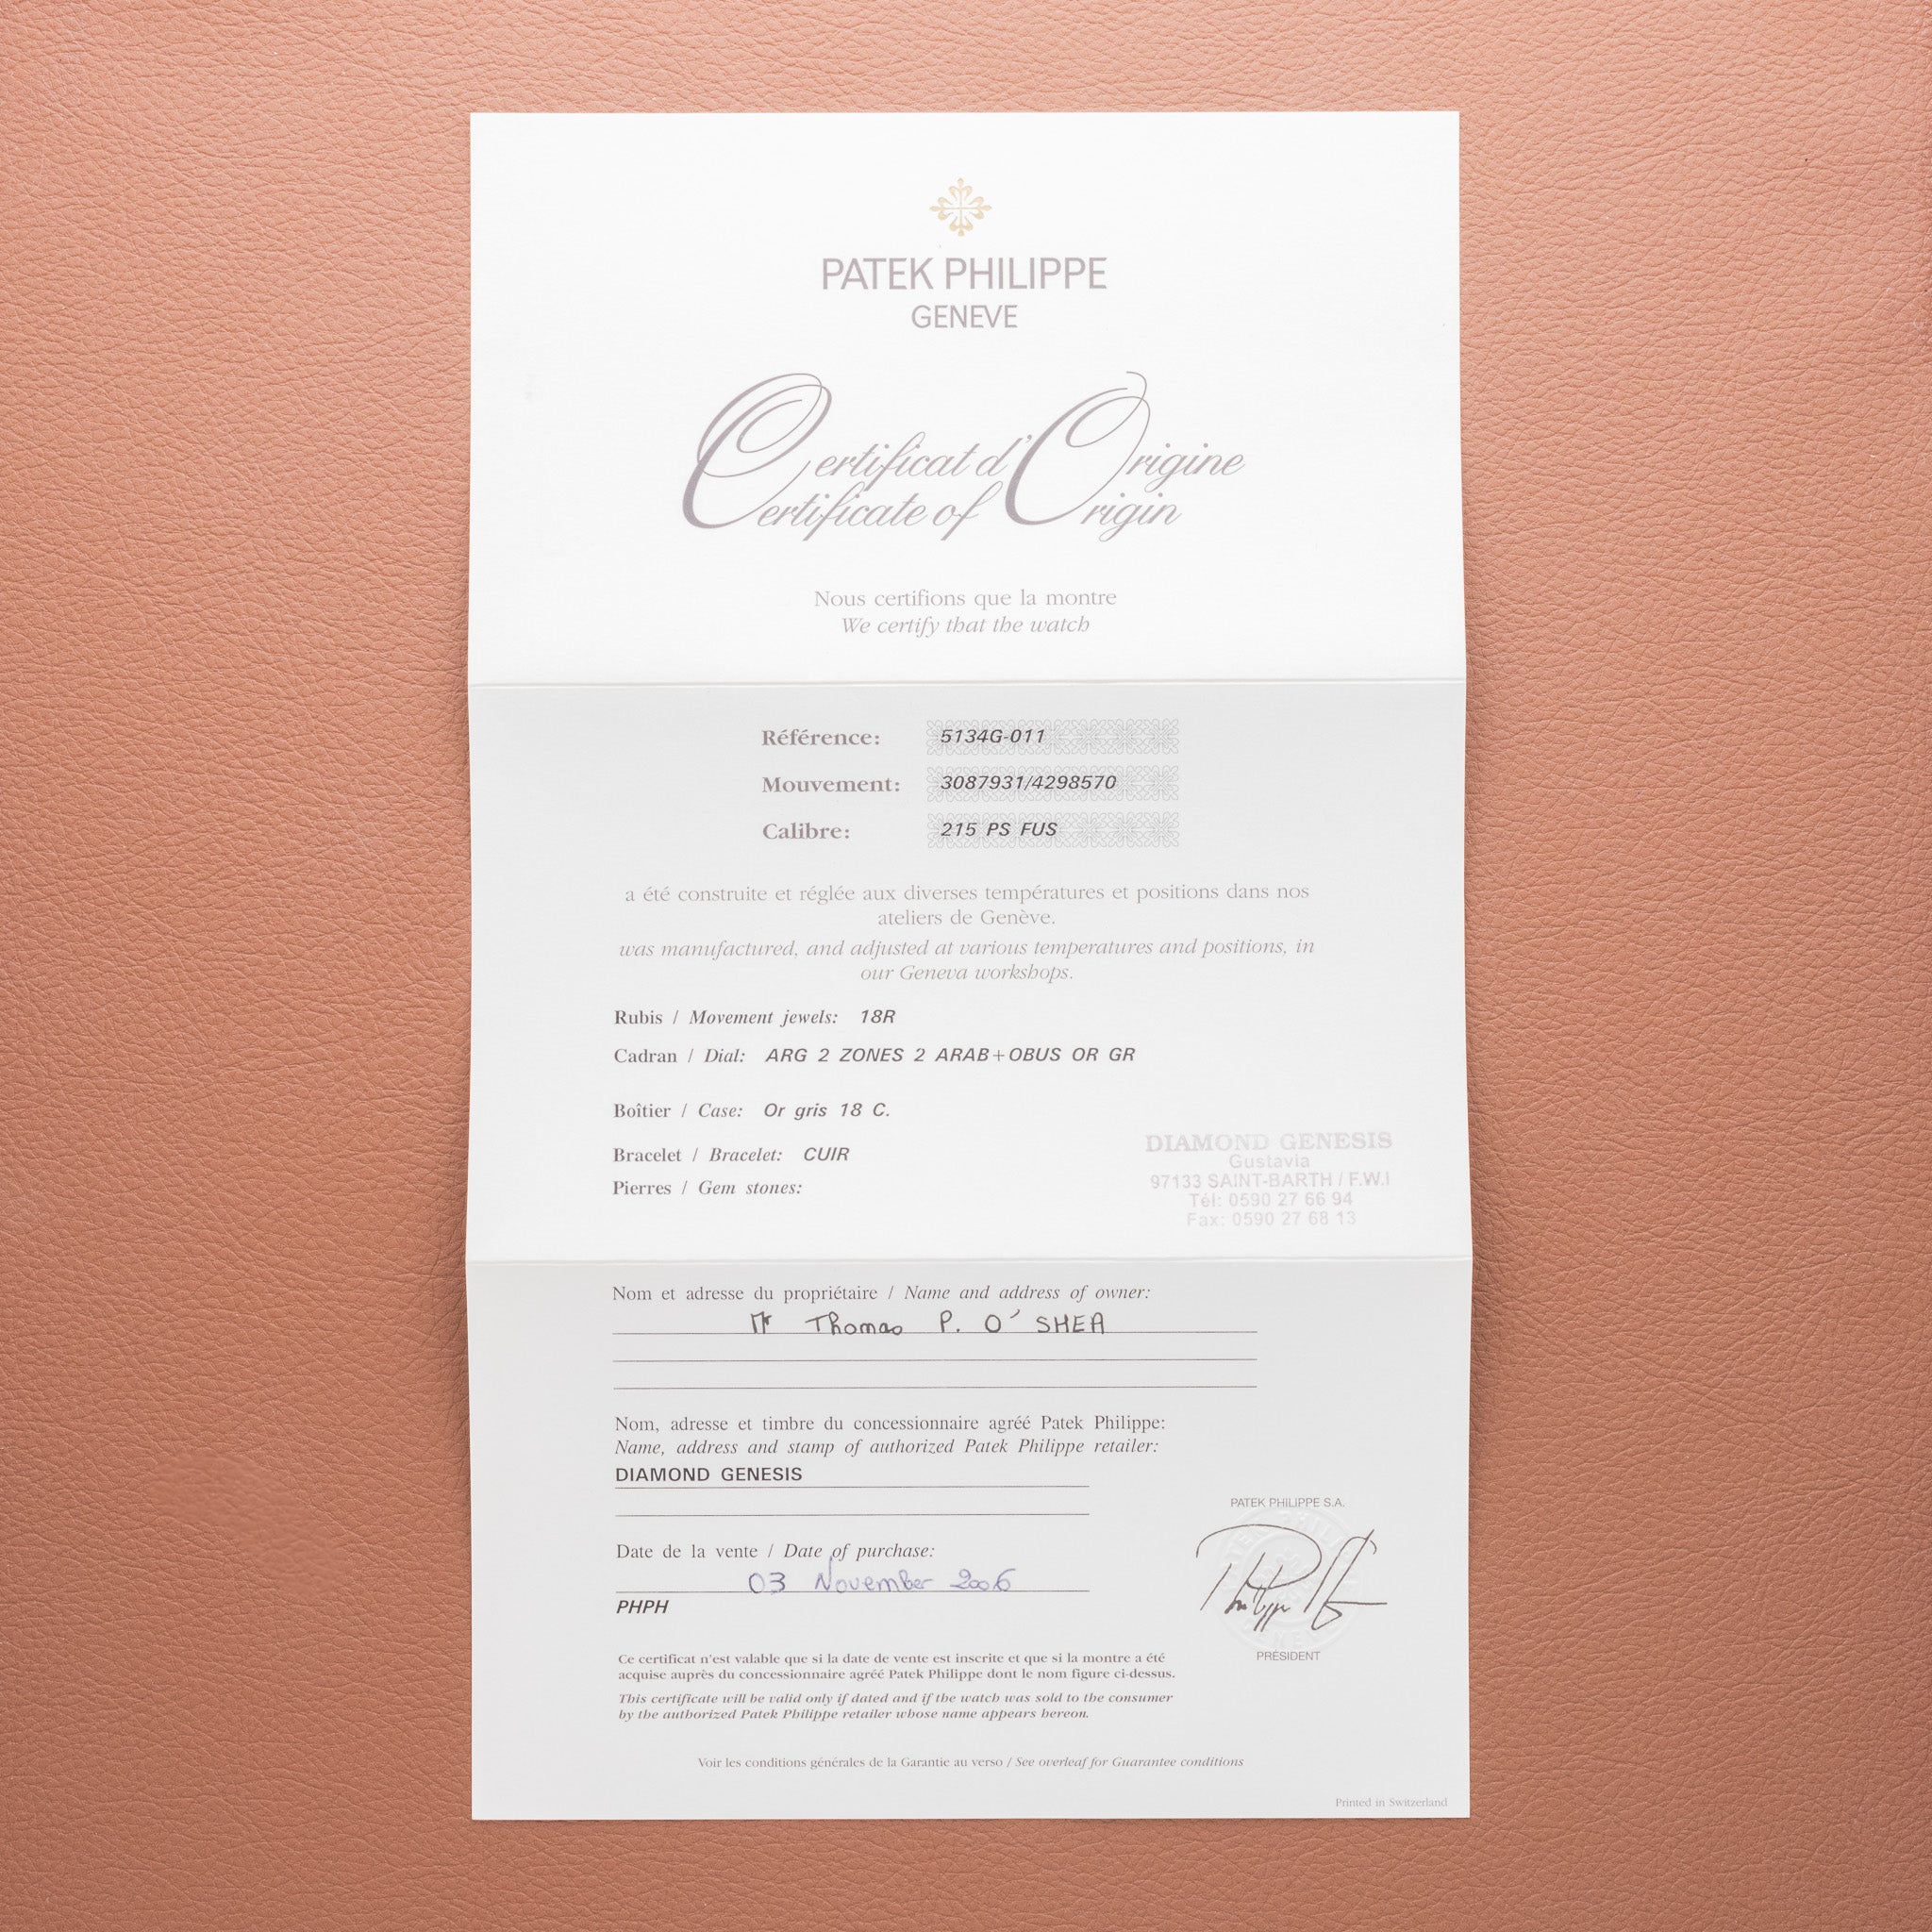 PATEK PHILIPPE
GENEVE
Certificat d'Origine
Certificate of Origin
Nous certifions que la montre
We certify that the watch
Référence: 5134G-011
Mouvement: 3087931/4298570
Calibre: 215 PS FUS
a été construite et réglée aux diverses températures et positions dans nos
ateliers de Genève.
was manufactured, and adjusted at various temperatures and positions, in
our Geneva workshops.
Rubis / Movement jewels: 18R
Cadran / Dial: ARG 2 ZONES 2 ARAB+OBUS OR GR
Boîtier / Case: Or gris 18 C.
Bracelet / Bracelet: CUIR
Pierres / Gem stones:
DIAMOND GENESIS
Gustavia
97133 SAINT-BARTH / F.W.I
Tél: 0590 27 66 94
Fax: 0590 27 68 13
Nom et adresse du propriétaire / Name and address of owner:
Mr Thomas P. O'SHEA
Nom, adresse et timbre du concessionnaire agréé Patek Philippe:
Name, address and stamp of authorized Patek Philippe retailer:
DIAMOND GENESIS
Date de la vente / Date of purchase:
03 November 2006
PHPH
PATEK PHILIPPE S.A.
PRÉSIDENT
Ce certificat n'est valable que si la date de vente est inscrite et que si la montre a été
acquise auprès du concessionnaire agréé Patek Philippe dont le nom figure ci-dessus.
This certificate will be valid only if dated and if the watch was sold to the consumer
by the authorized Patek Philippe retailer whose name appears hereon.
Voir les conditions générales de la Garantie au verso / See overleaf for Guarantee conditions
Printed in Switzerland